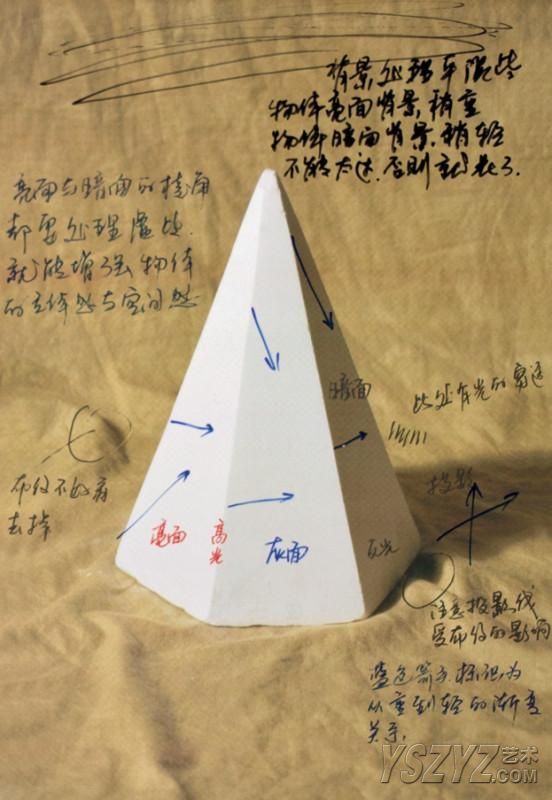 背景处理平混些
物体亮面背景稍重
物体暗面背景稍轻
不能太过,否则就花了.
亮面与暗面的棱角
都要处理虚些.
就能增强物体
的立体感与空间感
暗面
此处有光的穿透
布纹不好看
去掉
投影
亮面
高光
灰面
反光
注意投影线
受布纹的影响
蓝色箭头标识为
从重到轻的渐变
关系.
YSZYZ艺术
.COM